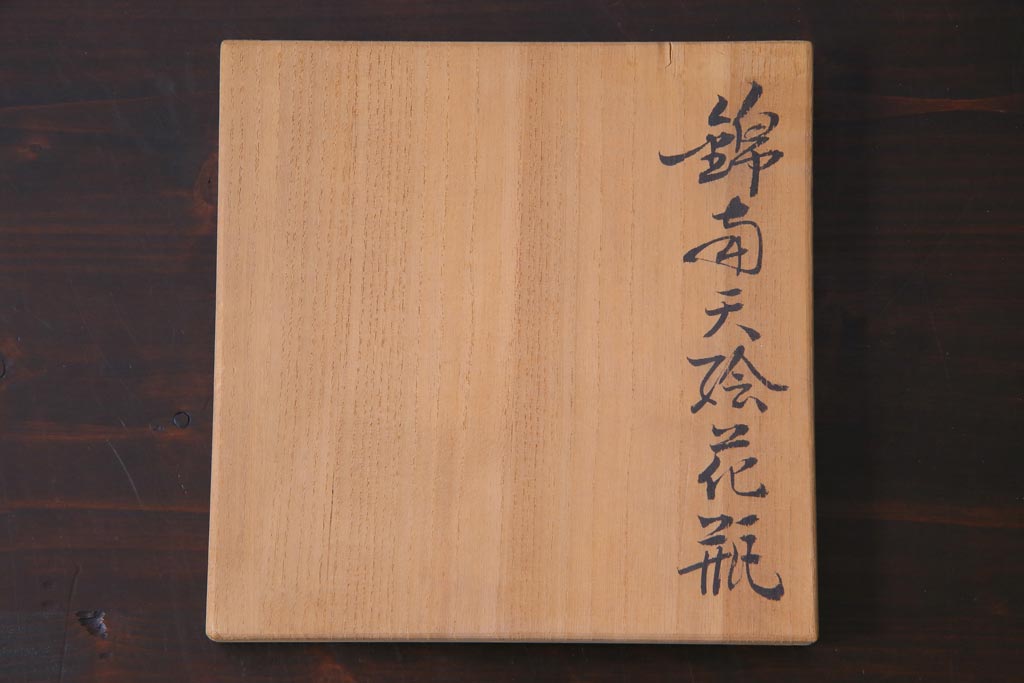 錦南天絵花瓶